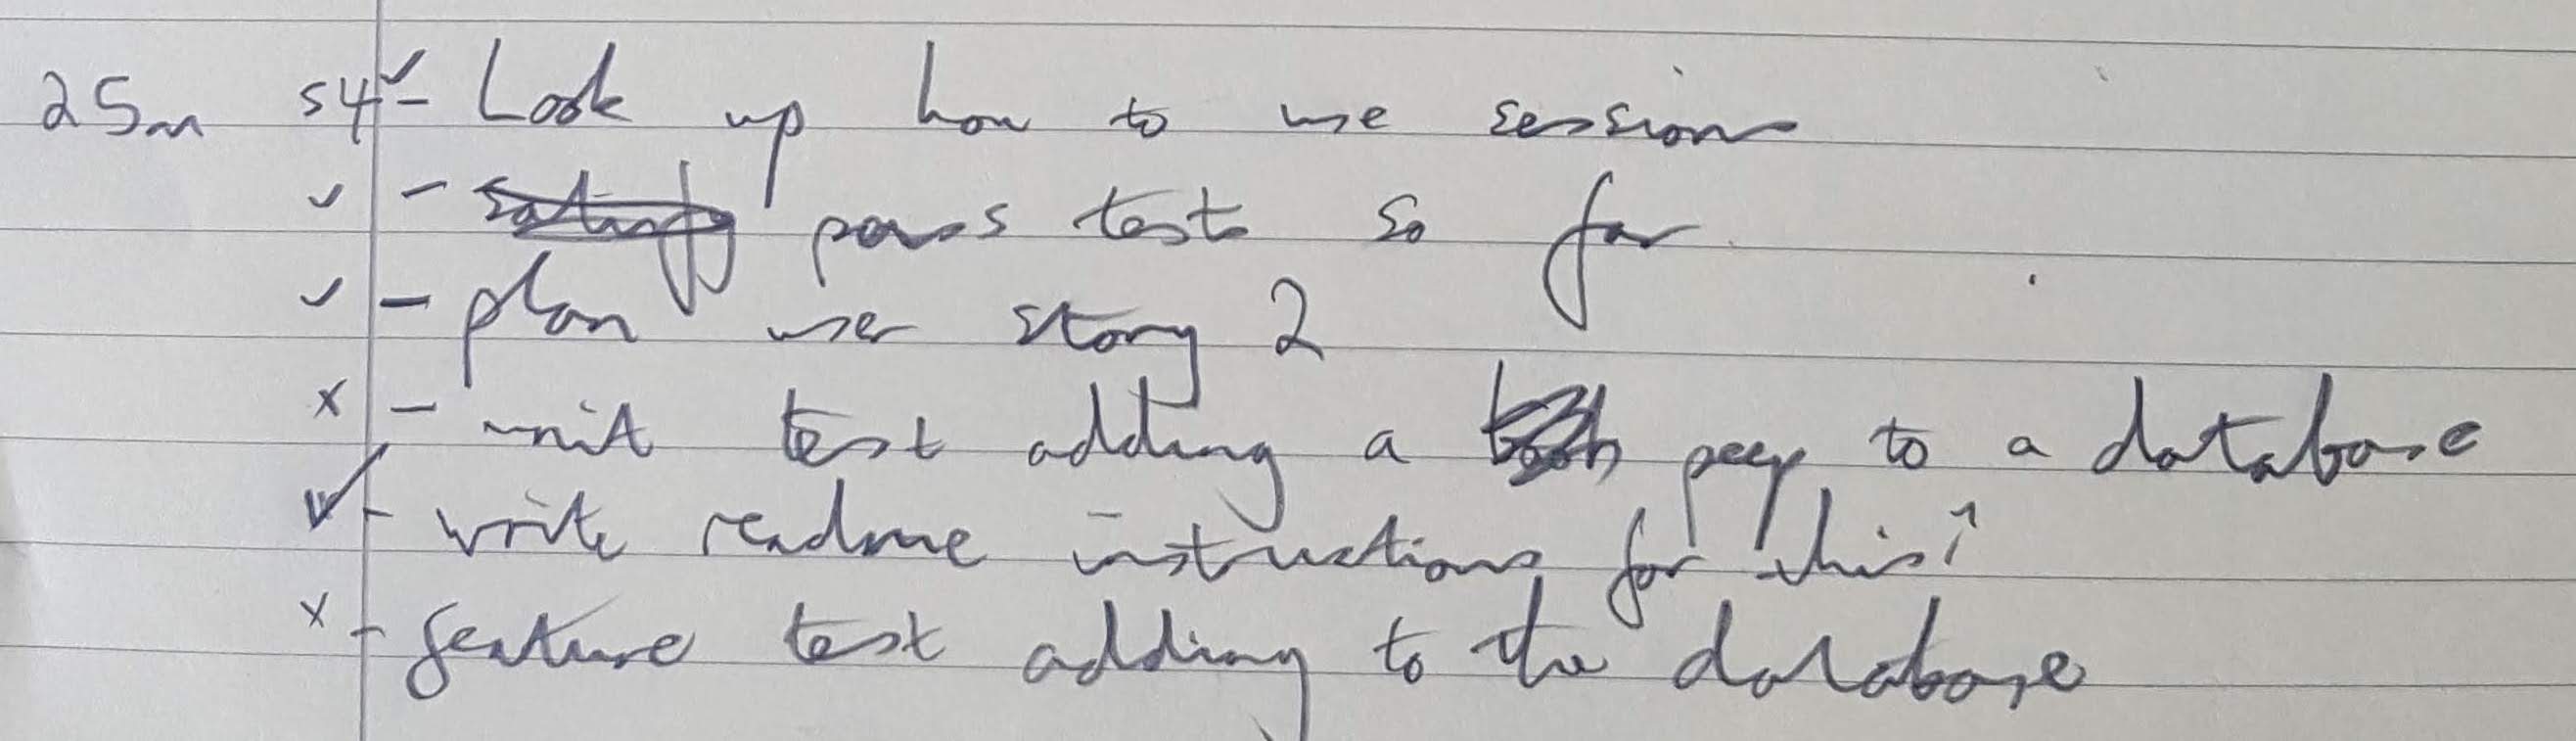 25m s4 ✓ - Look up how to use sessions
✓ - satisfy pass tests so far
✓ - plan user story 2
x - unit test adding a peep to a database
✓ - write readme instructions for this ↑
x - feature test adding to the database